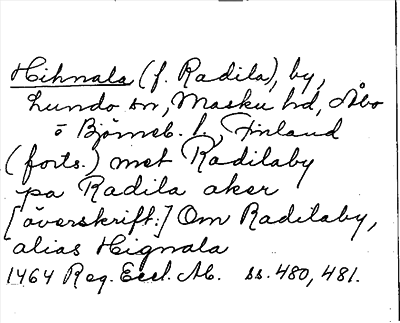 Hihnala (f. Radila), by,
Lundo sn, Masku hd, Åbo
o Björneb. l., Finland
(forts.) mot Radilaby
pa Radila aker
[överskrift:] Om Radilaby,
alias Hignala
1464 Reg. Eccl. Ab. ss. 480, 481.